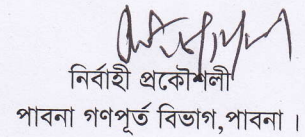 নির্বাহী প্রকৌশলী
পাবনা গণপূর্ত বিভাগ,পাবনা ।